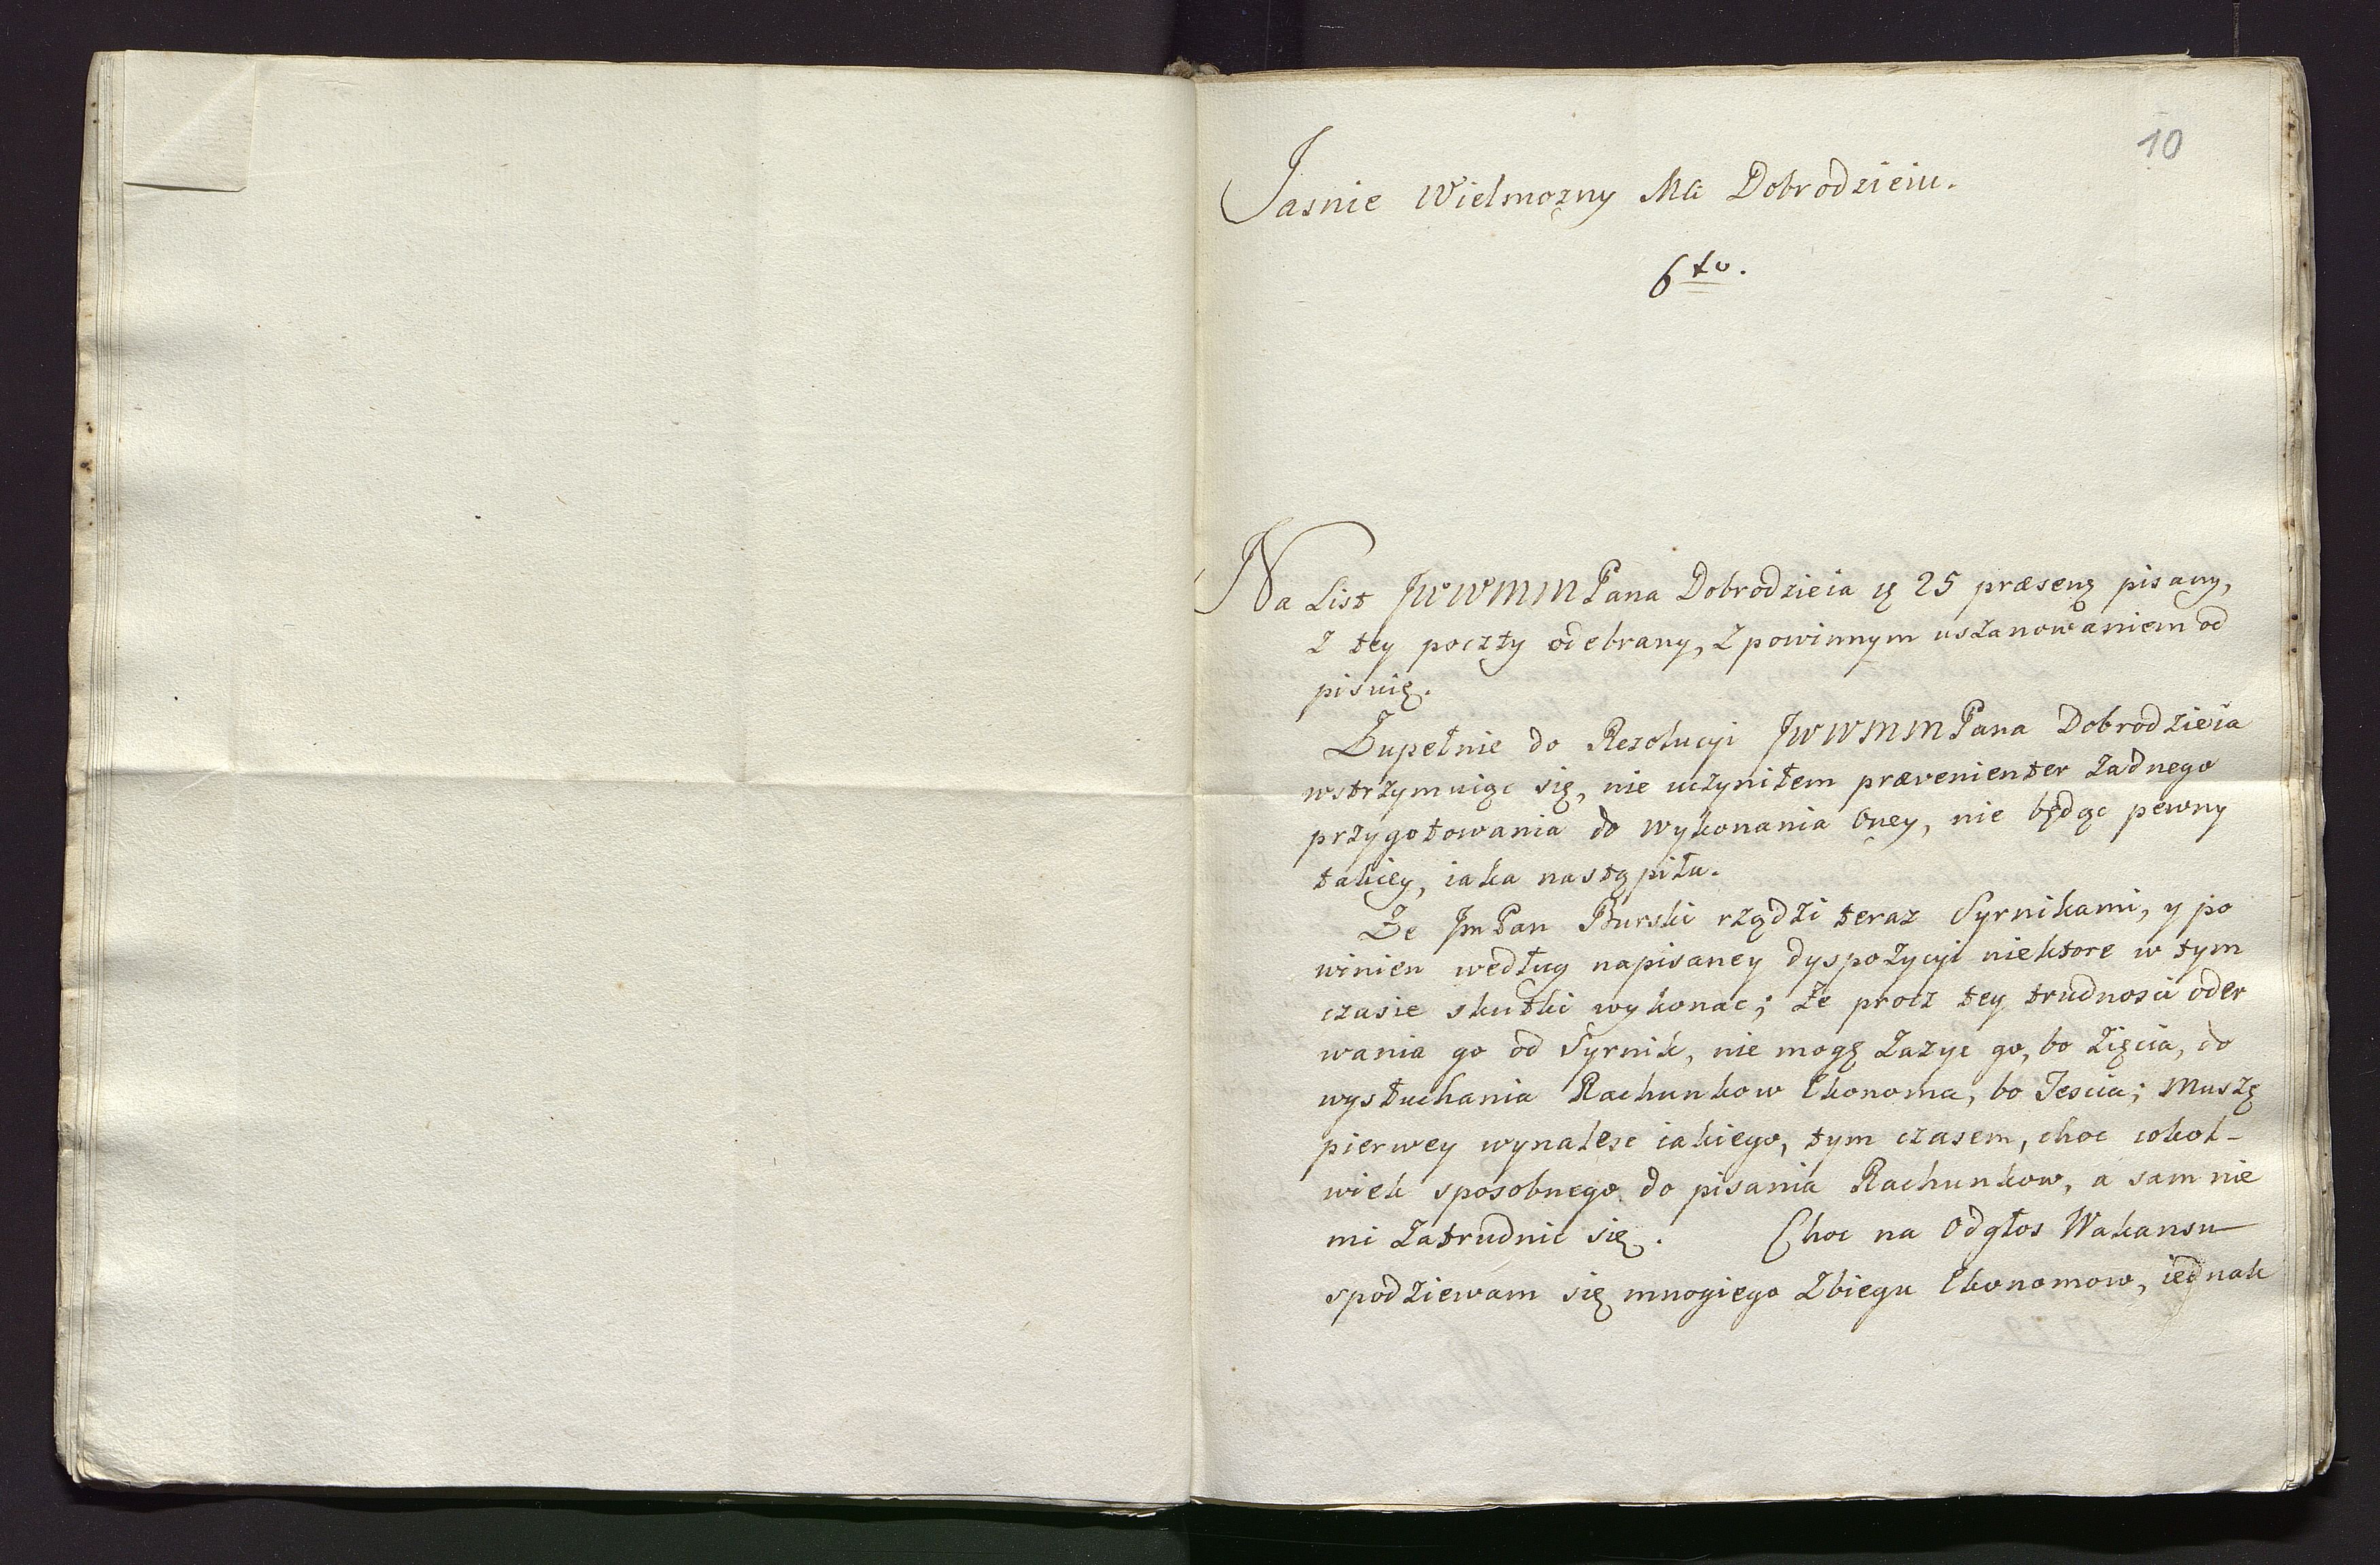 10
Jasnie Wielmozny Mci Dobrodzieiu.
6to.
Na List JWWMMPana Dobrodzieia 25 præsent pisany,
z tey poczty odebrany, z powinnym uszanowaniem od
pisuię.
Zupełnie do Rezolucyi JWWMMPana Dobrodzieia
wstrzymuiąc się, nie uczyniłem prævenienter żadnego
przygotowania do wykonania Oney, nie będąc pewny
takiey, iaka nastąpiła.
Ze JmPan Burski rządzi teraz Syrnikami, y po
winien według napisaney dyspozycyi niektore w tym
czasie skutki wykonac; że procz tey trudnosci oder
wania go od Syrnik, nie mogę zazyc go, bo Zięcia, do
wysłuchania Rachunkow Ekonoma, bo Tescia; Muszę
pierwey wynalesc iakiego, tym czasem, choc cokol-
wiek sposobnego do pisania Rachunkow, a sam nie
mi zatrudnic się. Choc na Odgłos Wakansu
spodziewam się mnogiego zbiegu Ekonomow, iednak